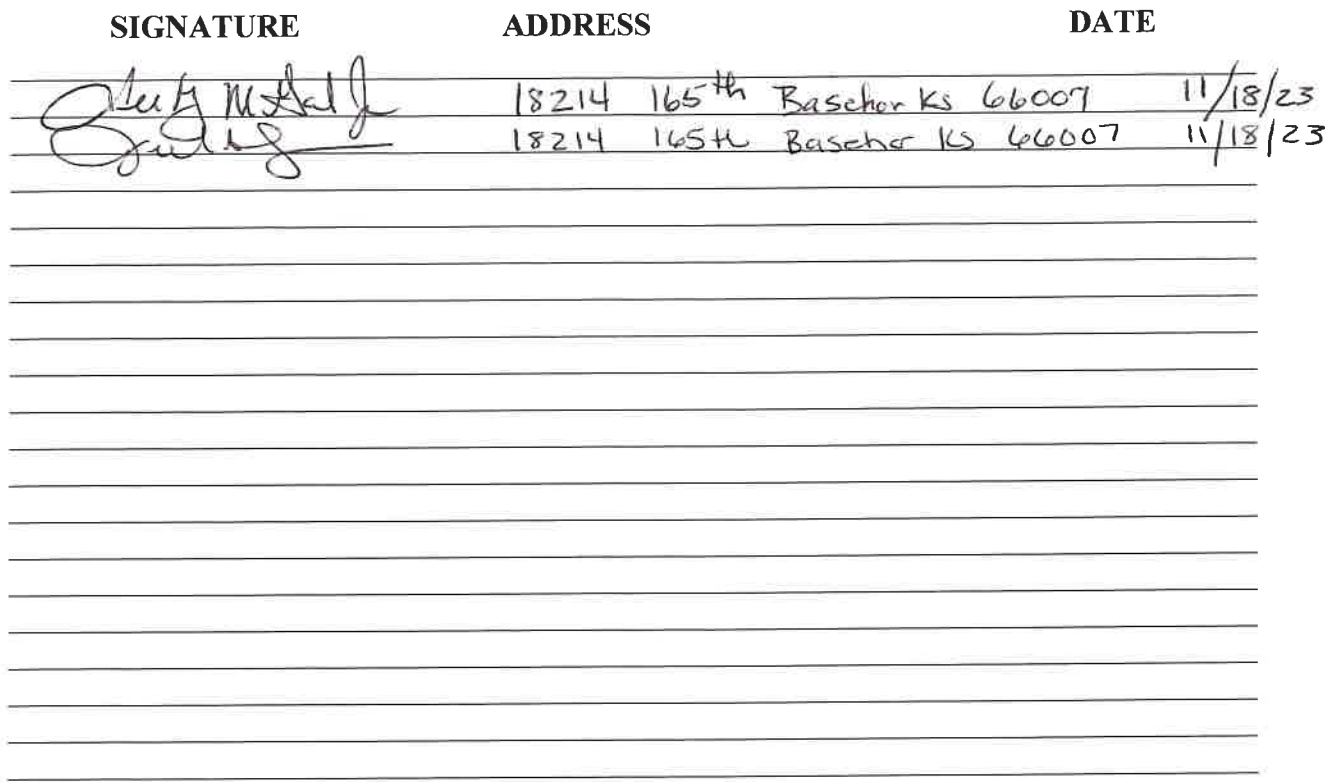 SIGNATURE ADDRESS DATE
18214 165th Basehor Ks 66007 11/18/23
18214 165th Basehor Ks 66007 11/18/23